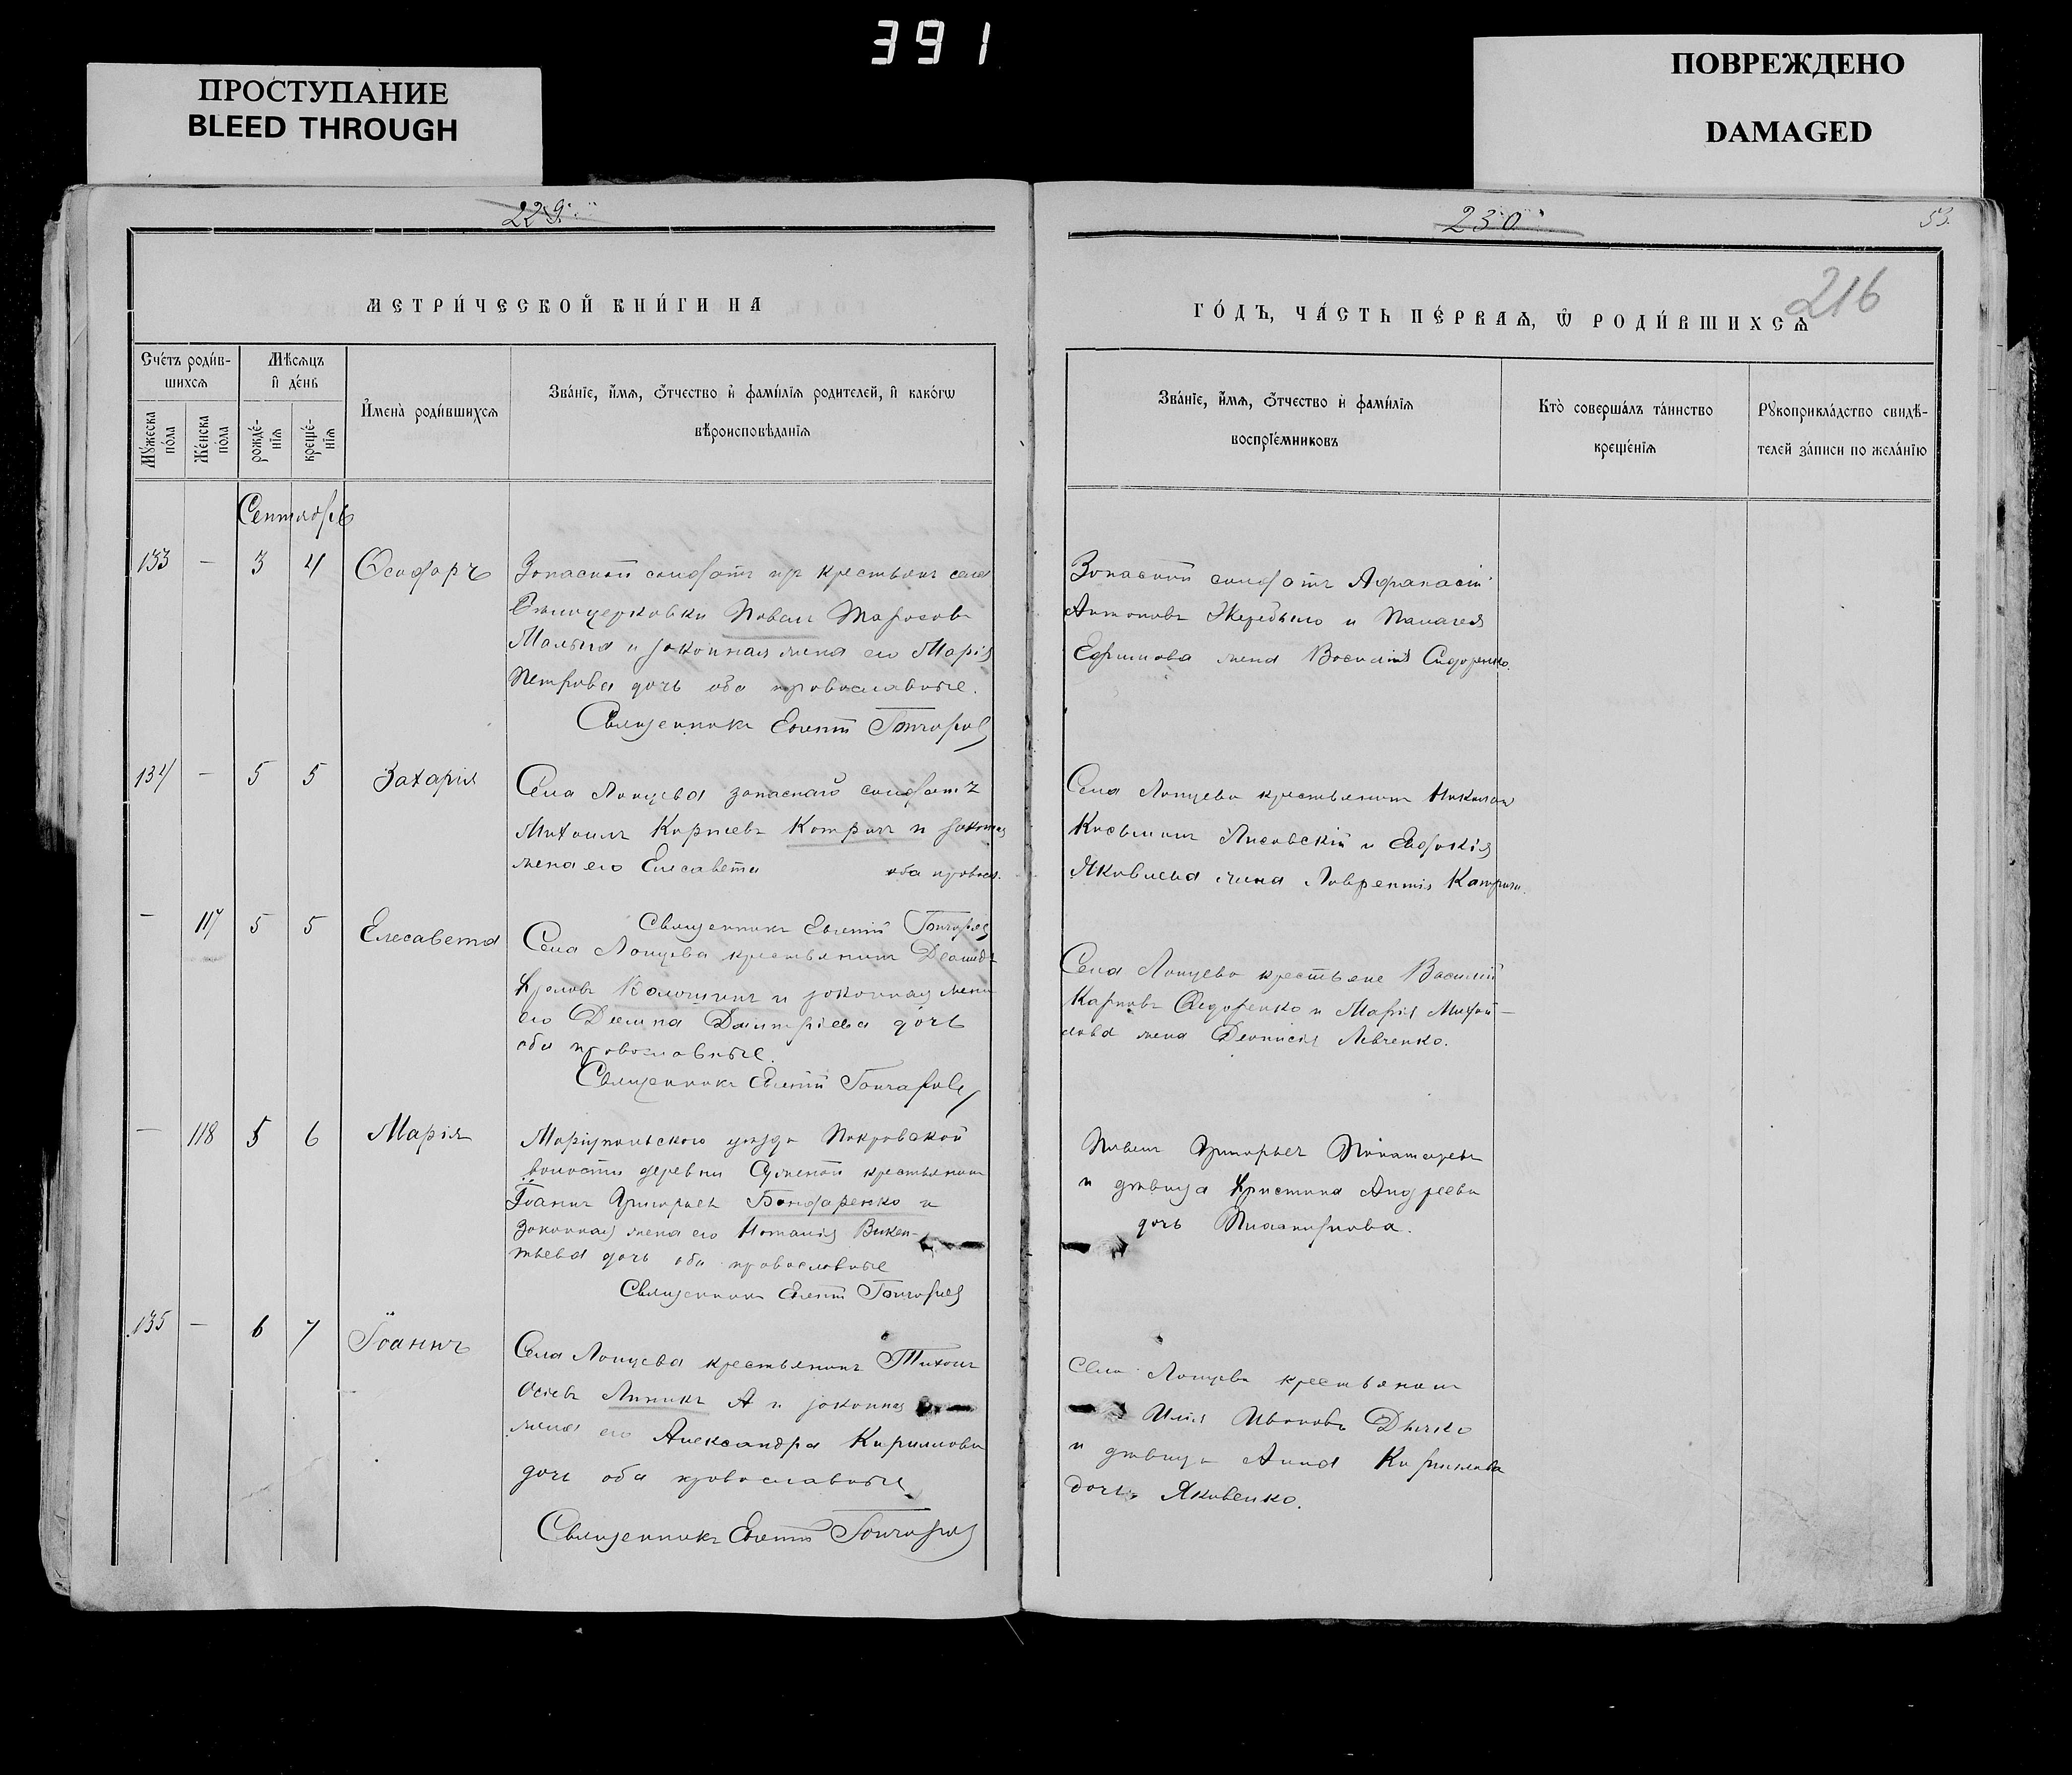 391
ПРОСТУПАНИЕ
BLEED THROUGH
ПОВРЕЖДЕНО
DAMAGED
229
МЕТРИ́ЧЕСКОЙ КНИ́ГИ НА
Сче́тъ роди́в-
шихсѧ
Мѣсѧцъ
и҆ де́нь
Мꙋ́жеска
по́ла
Же́нска
по́ла
рожде́-
нїѧ
креще́-
нїѧ
И҆мена̀ роди́вшихсѧ
Зва́нїе, и҆́мѧ, ѻ҆́тчество и҆ фами́лїѧ родителей, и҆ како́гѡ
вѣроисповѣданїѧ
Сентябрь
133 — 3 4 Ѳеодоръ
Запасной солдатъ изъ крестьянъ села
Павелъ Тарасовъ
и законная жена его Марія
Петрова дочь оба православные.
Священникъ Евгеній Гончаровъ
134 — 5 5 Захарія
Села запаснаго солдатъ
Михаилъ Карпевъ Катричъ и законная
жена его Елисавета оба правосл.
Священникъ Евгеній Гончаровъ
— 117 5 5 Елесавета
Села крестьянинъ
и законная жена
его Димитріева дочь
оба православные.
Священникъ Евгеній Гончаровъ
— 118 5 6 Марія
Маріупольскаго уѣзда Покровской
волости деревни крестьянинъ
Іоаннъ Григорьевъ Бондаренко и
законная жена его Наталія Викен-
тьева дочь оба православные
Священникъ Евгеній Гончаровъ
135 — 6 7 Іоаннъ
Села крестьянинъ Тихонъ
Линникъ и законная
жена его Александра Кириллова
дочь оба православные
Священникъ Евгеній Гончаровъ
230
53.
216
ГО́ДЪ, ЧА́СТЬ ПЕ́РВАѦ, Ѡ҆ РОДИ́ВШИХСѦ
Зва́нїе, и҆́мѧ, ѻ҆́тчество и҆ фами́лїѧ
воспрїе́мниковъ
Кто̀ соверша́лъ та́инство
креще́нїѧ
Рꙋкоприкла́дство свидѣ́-
телей за́писи по жела́нїю
Запасной солдатъ Афанасій
Антоновъ и Палагея
Ефимова жена Василія Сидоренко.
Села крестьянинъ Николай
Лисовскій и Евдокія
Яковлева жена Лаврентія Катрича.
Села крестьяне Василій
Карповъ Сидоренко и Марія Михай-
лова жена Діонисія Левченко.
Павелъ Григорьевъ
и дѣвица Христина Андреева
дочь
Села крестьянинъ
Илія Ивановъ Дьячко
и дѣвица Анна Кириллова
дочь Яковенко.